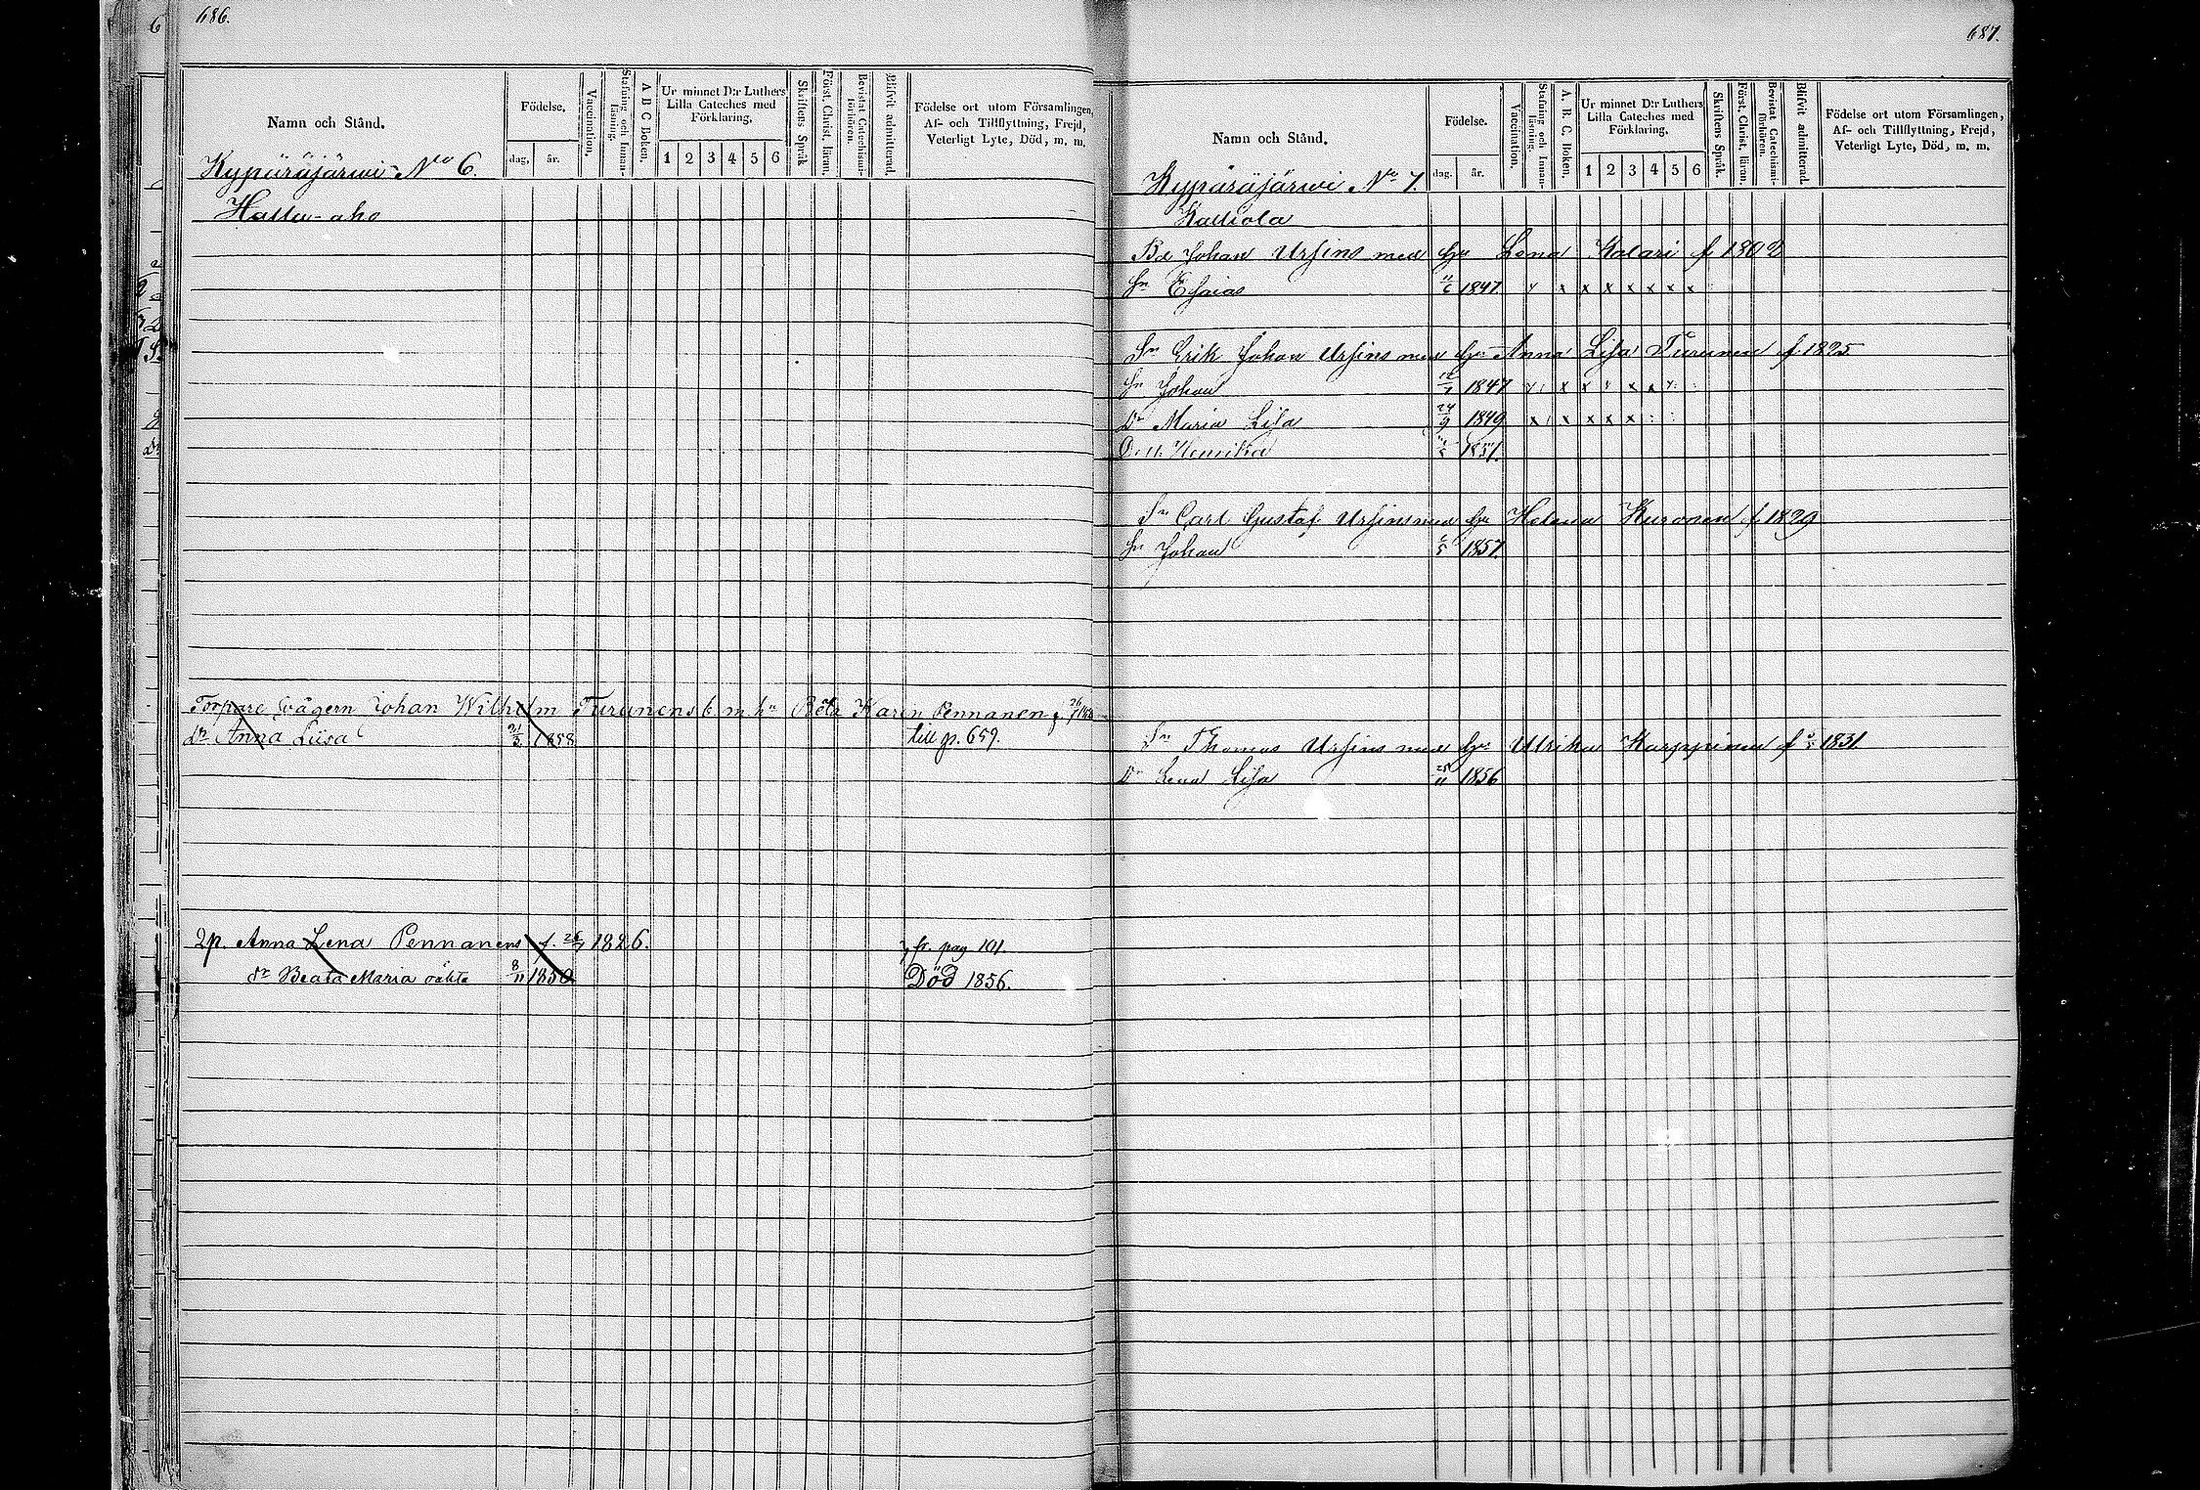 686.
Namn och Stånd.
Födelse.
dag. år.
Vaccination.
Stafning och Innanläsning.
A B C Boken.
Ur minnet D:r Luthers Lilla Cateches med Förklaring.
1 2 3 4 5 6
Skriftens Språk
Först. Christ. läran.
Bevistat Catechismiförhören.
Blifvit admitterad.
Födelse ort utom Församlingen, Af- och Tillflyttning, Frejd, Veterligt Lyte, Död, m. m.
Kypäräjärwi No 6.
Halla-aho
Torpare Johan Wilhelm Turunens b m hu Beta Karin Pennanen
dr Anna Liisa 21/3 1858 till p. 659.
Anna Lena Pennanens f. 26/7 1826. fr. pag 101.
dr Beata Maria oäkta 8/11 1850 Död 1856.
687.
Namn och Stånd.
Födelse.
dag. år.
Vaccination.
Stafning och Innanläsning.
A. B. C. Boken.
Ur minnet D:r Luthers Lilla Cateches med Förklaring.
1 2 3 4 5 6
Skriftens Språk.
Först. Christ. läran.
Bevistat Catechismiförhören.
Blifvit admitterad.
Födelse ort utom Församlingen, Af- och Tillflyttning, Frejd, Veterligt Lyte, Död, m. m.
Kypäräjärwi No 7.
Kalliola
Bd Johan Ursins med hu Lena Kolari f 1802
Sn Esaias 1847 x x x x x x x x
Sn Erik Johan Ursins med hu Anna Lisa Turunen f. 1825
Sn Johan 1847 x x x x x x x
Dr Maria Lisa 24/9 1849 x x x x x
Henrika 1851.
Sn Carl Gustaf Ursins med hu Helena Kuronen f. 1829
Sn Johan 1857.
Sn Thomas Ursins med hu Ulrika Karppinen f 1831
Dr Lena Lisa 25/11 1856